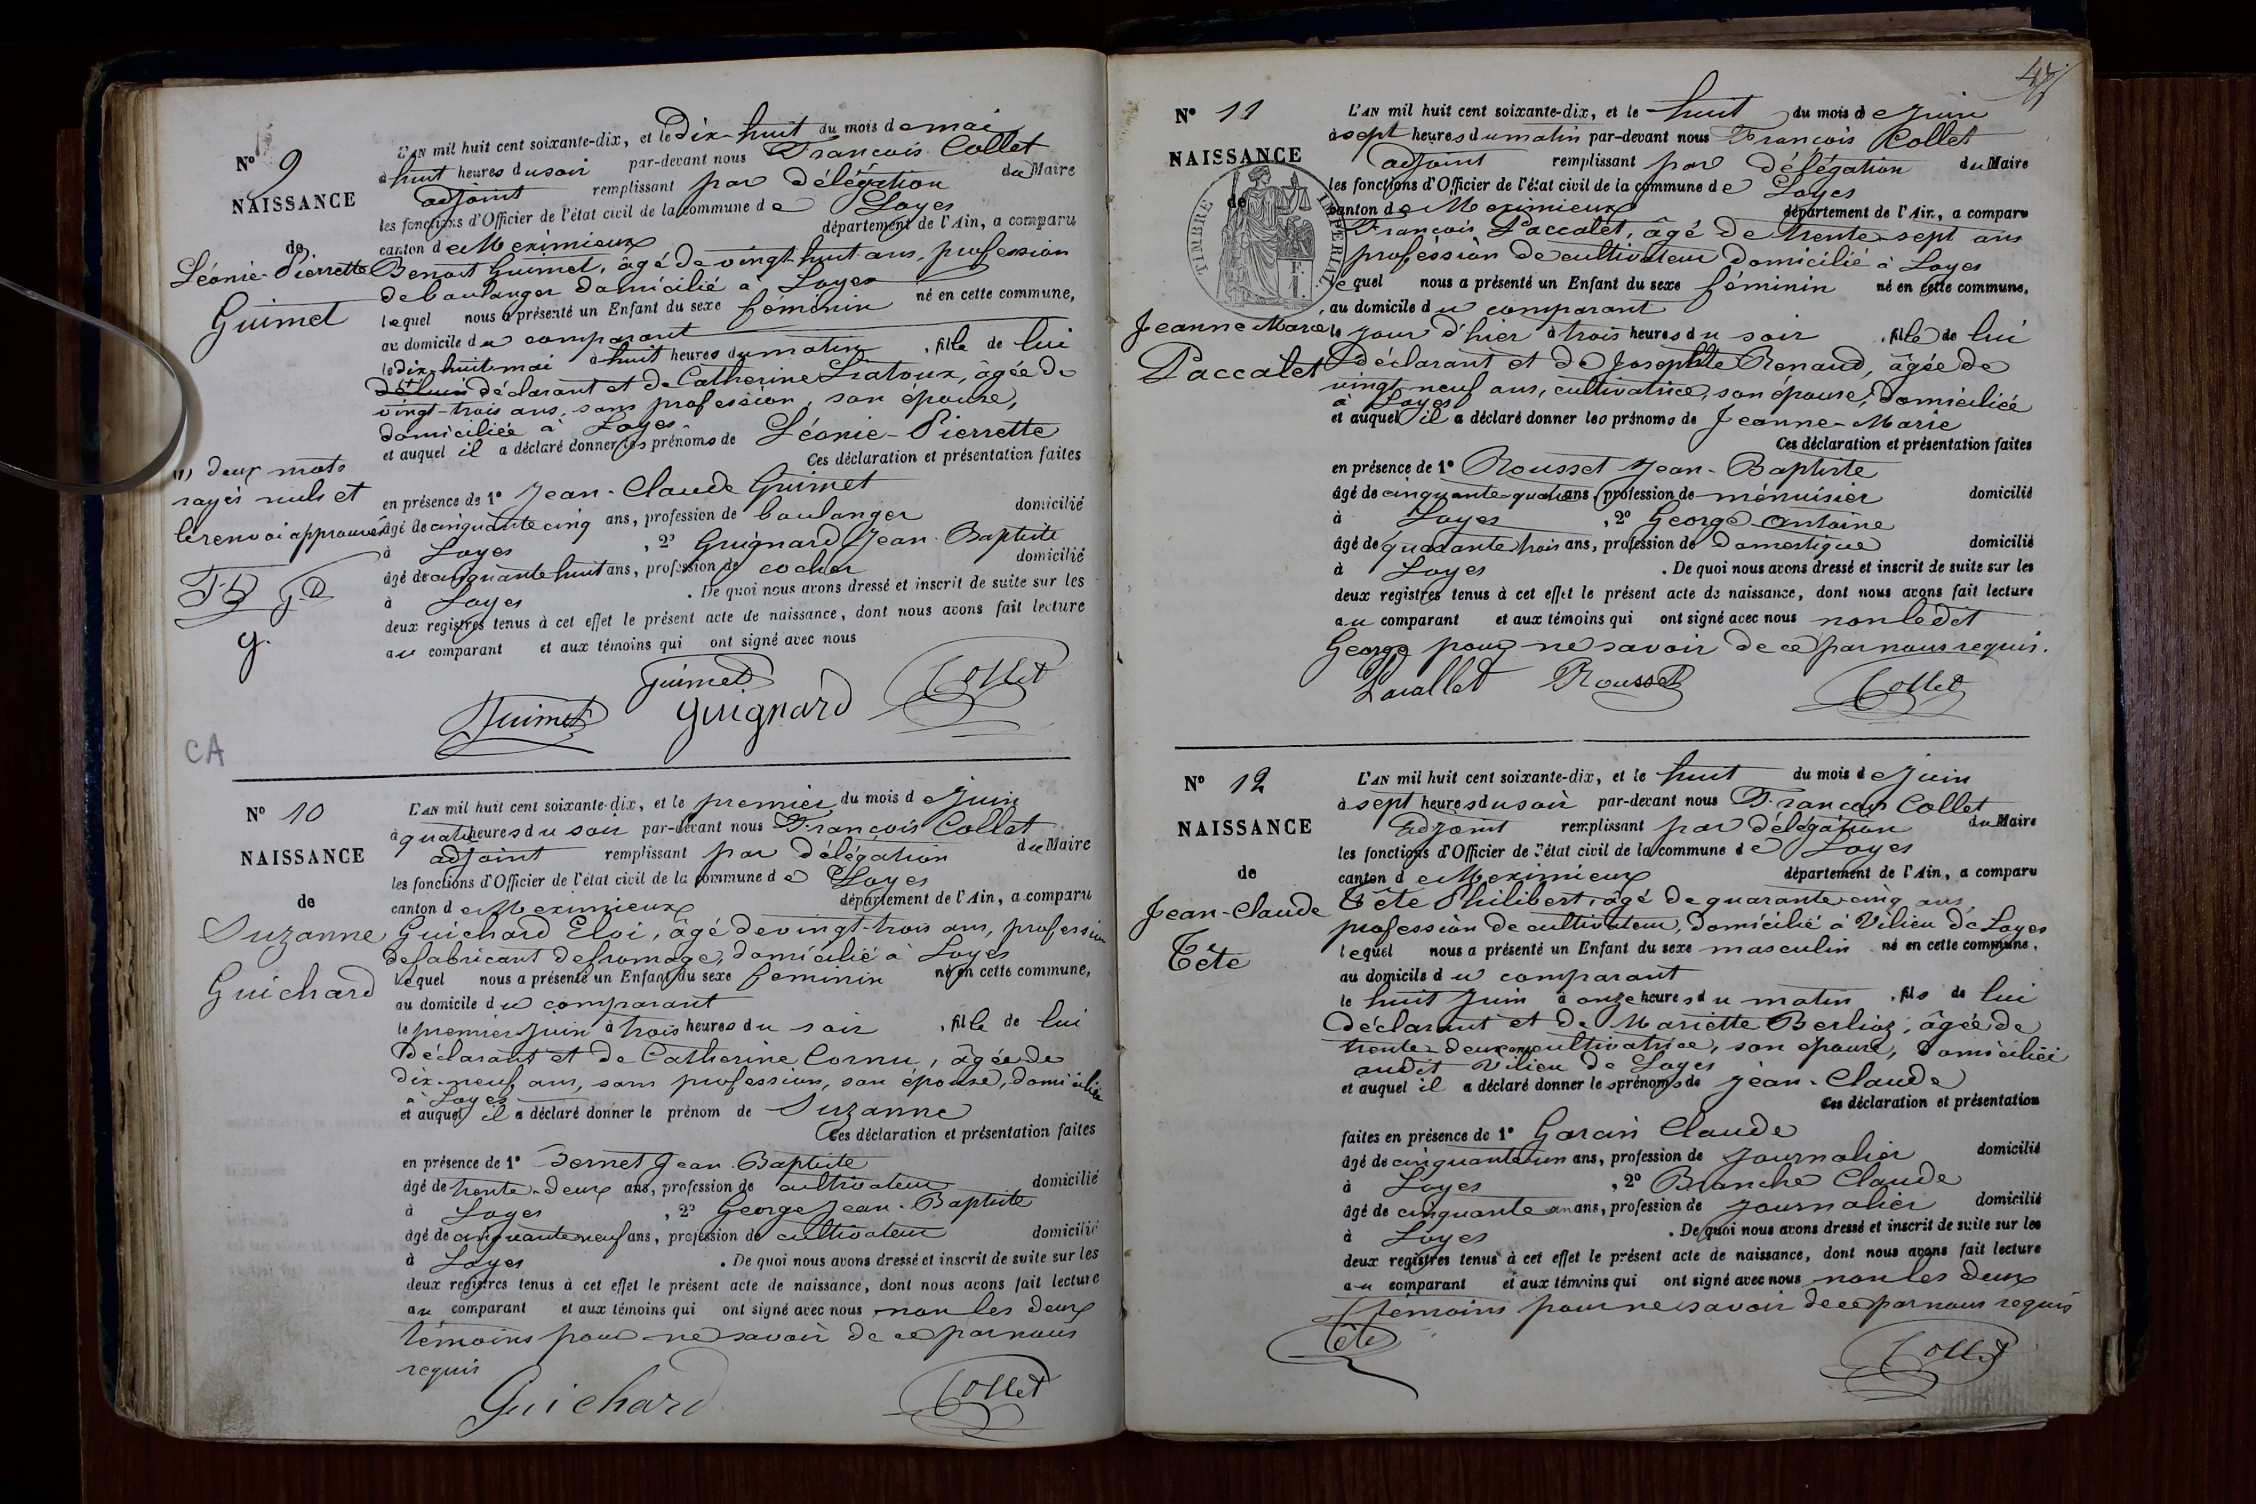 N° 9
NAISSANCE
de
Léonie-Pierrette
Guimet
(1) deux mots
rayés nuls et
le renvoi approuvés
g
CA
L'AN mil huit cent soixante-dix, et le Dix-huit du mois de mai
à huit heures du soir par-devant nous François Collet
adjoint remplissant par délégation du Maire
les fonctions d'Officier de l'état civil de la commune de Loyes
canton de Meximieux département de l'Ain, a comparu
Benoit Guimet, âgé de vingt-huit ans, profession
de boulanger domicilié à Loyes
lequel nous a présenté un Enfant du sexe féminin né en cette commune,
au domicile du comparant
le dix-huit mai à huit heures du matin, fille de lui
déclarant et de Catherine Liatoux, âgée de
vingt-trois ans, sans profession, son épouse,
domiciliée à Loyes.
et auquel il a déclaré donner les prénoms de Léonie-Pierrette
Ces déclaration et présentation faites
en présence de 1° Jean-Claude Guimet
âgé de cinquante cinq ans, profession de boulanger domicilié
à Loyes, 2° Guignard Jean-Baptiste
âgé de cinquante huit ans, profession de cocher domicilié
à Loyes. De quoi nous avons dressé et inscrit de suite sur les
deux registres tenus à cet effet le présent acte de naissance, dont nous avons fait lecture
au comparant et aux témoins qui ont signé avec nous
Guimet
Guimet Guignard Collet
N° 10
NAISSANCE
de
Suzanne
Guichard
L'AN mil huit cent soixante-dix, et le premier du mois de Juin
à quatre heures du soir par-devant nous François Collet
adjoint remplissant par délégation du Maire
les fonctions d'Officier de l'état civil de la commune de Loyes
canton de Meximieux département de l'Ain, a comparu
Guichard Eloi, âgé de vingt-trois ans, profession
de fabricant de fromage, domicilié à Loyes
lequel nous a présenté un Enfant du sexe feminin né en cette commune,
au domicile du comparant
le premier Juin à trois heures du soir, fille de lui
déclarant et de Catherine Cornu, âgée de
dix-neuf ans, sans profession, son épouse, domiciliée
à Loyes
et auquel il a déclaré donner le prénom de Suzanne
Ces déclaration et présentation faites
en présence de 1° Jean-Baptiste
âgé de trente-deux ans, profession de cultivateur domicilié
à Loyes, 2° George Jean-Baptiste
âgé de cinquante neuf ans, profession de cultivateur domicilié
à Loyes. De quoi nous avons dressé et inscrit de suite sur les
deux registres tenus à cet effet le présent acte de naissance, dont nous avons fait lecture
au comparant et aux témoins qui ont signé avec nous non les deux
témoins pour ne savoir de ce par nous
requis
Guichard Collet
N° 11
NAISSANCE
de
TIMBRE IMPERIAL
Jeanne Marie
Paccalet
L'AN mil huit cent soixante-dix, et le huit du mois de Juin
à sept heures du matin par-devant nous François Collet
adjoint remplissant par délégation du Maire
les fonctions d'Officier de l'état civil de la commune de Loyes
canton de Meximieux département de l'Ain, a comparu
François Paccalet, âgé de trente-sept ans
profession de cultivateur domicilié à Loyes
lequel nous a présenté un Enfant du sexe féminin né en cette commune,
au domicile du comparant
le jour d'hier à trois heures du soir, fille de lui
déclarant et de Josephte Renaud, âgée de
vingt-neuf ans, cultivatrice, son épouse, domiciliée
à Loyes
et auquel il a déclaré donner les prénoms de Jeanne-Marie
Ces déclaration et présentation faites
en présence de 1° Rousset Jean-Baptiste
âgé de cinquante-quatre ans, profession de ménuisier domicilié
à Loyes, 2° George Antoine
âgé de quarante trois ans, profession de domestique domicilié
à Loyes. De quoi nous avons dressé et inscrit de suite sur les
deux registres tenus à cet effet le présent acte de naissance, dont nous avons fait lecture
au comparant et aux témoins qui ont signé avec nous non ledit
George pour ne savoir de ce par nous requis.
Rousset Collet
N° 12
NAISSANCE
de
Jean-Claude
Tête
L'AN mil huit cent soixante-dix, et le huit du mois de Juin
à sept heures du soir par-devant nous François Collet
adjoint remplissant par délégation du Maire
les fonctions d'Officier de l'état civil de la commune de Loyes
canton de Meximieux département de l'Ain, a comparu
Tête Philibert, âgé de quarante-cinq ans,
profession de cultivateur, domicilié à Vilieu de Loyes
lequel nous a présenté un Enfant du sexe masculin né en cette commune,
au domicile du comparant
le huit Juin à onze heures du matin, fils de lui
déclarant et de Mariette Berlioz, âgée de
trente-deux ans cultivatrice, son épouse, domiciliée
audit Vilieu de Loyes
et auquel il a déclaré donner les prénoms de Jean-Claude
Ces déclaration et présentation
faites en présence de 1° Garcin Claude
âgé de cinquante un ans, profession de journalier domicilié
à Loyes, 2° Branche Claude
âgé de cinquante un ans, profession de journalier domicilié
à Loyes. De quoi nous avons dressé et inscrit de suite sur les
deux registres tenus à cet effet le présent acte de naissance, dont nous avons fait lecture
au comparant et aux témoins qui ont signé avec nous non les deux
témoins pour ne savoir de ce par nous requis
Tête Collet